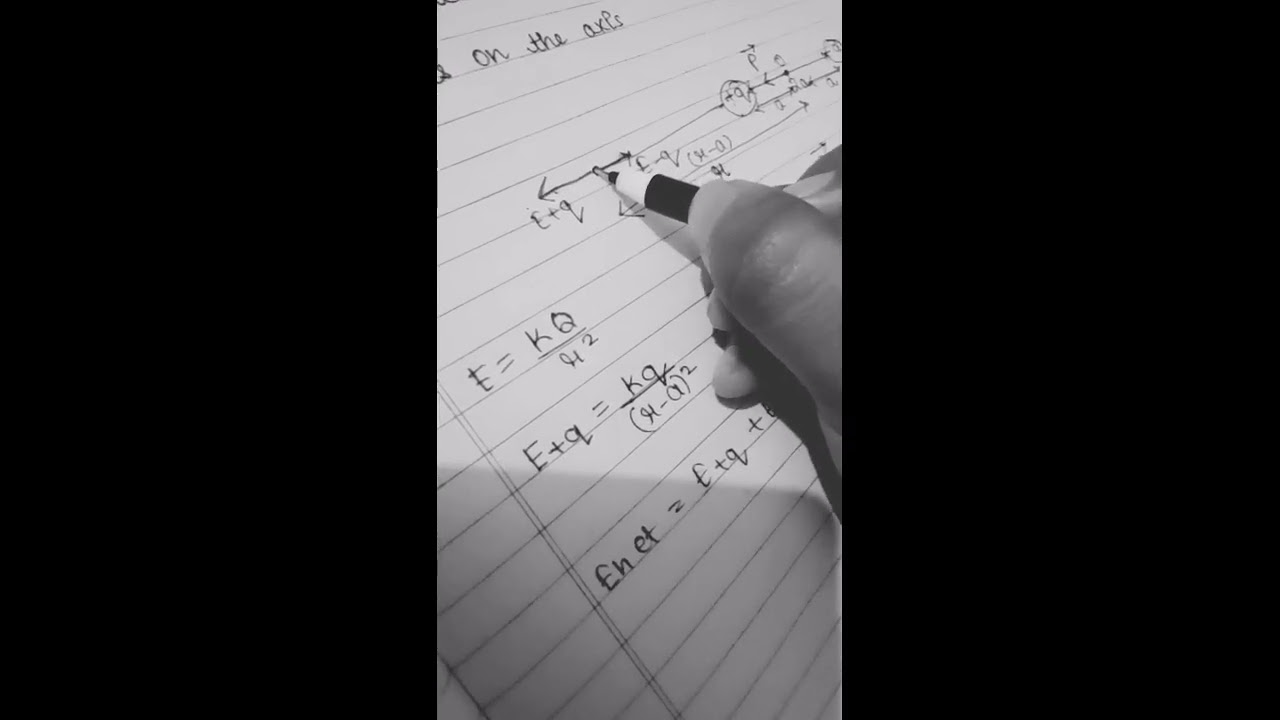 on the axis
P
O
+q
2a
a
a
E-q (r-a)
r
E+q
E = KQ/r2
E+q = Kq/(r-a)2
Enet = E+q +